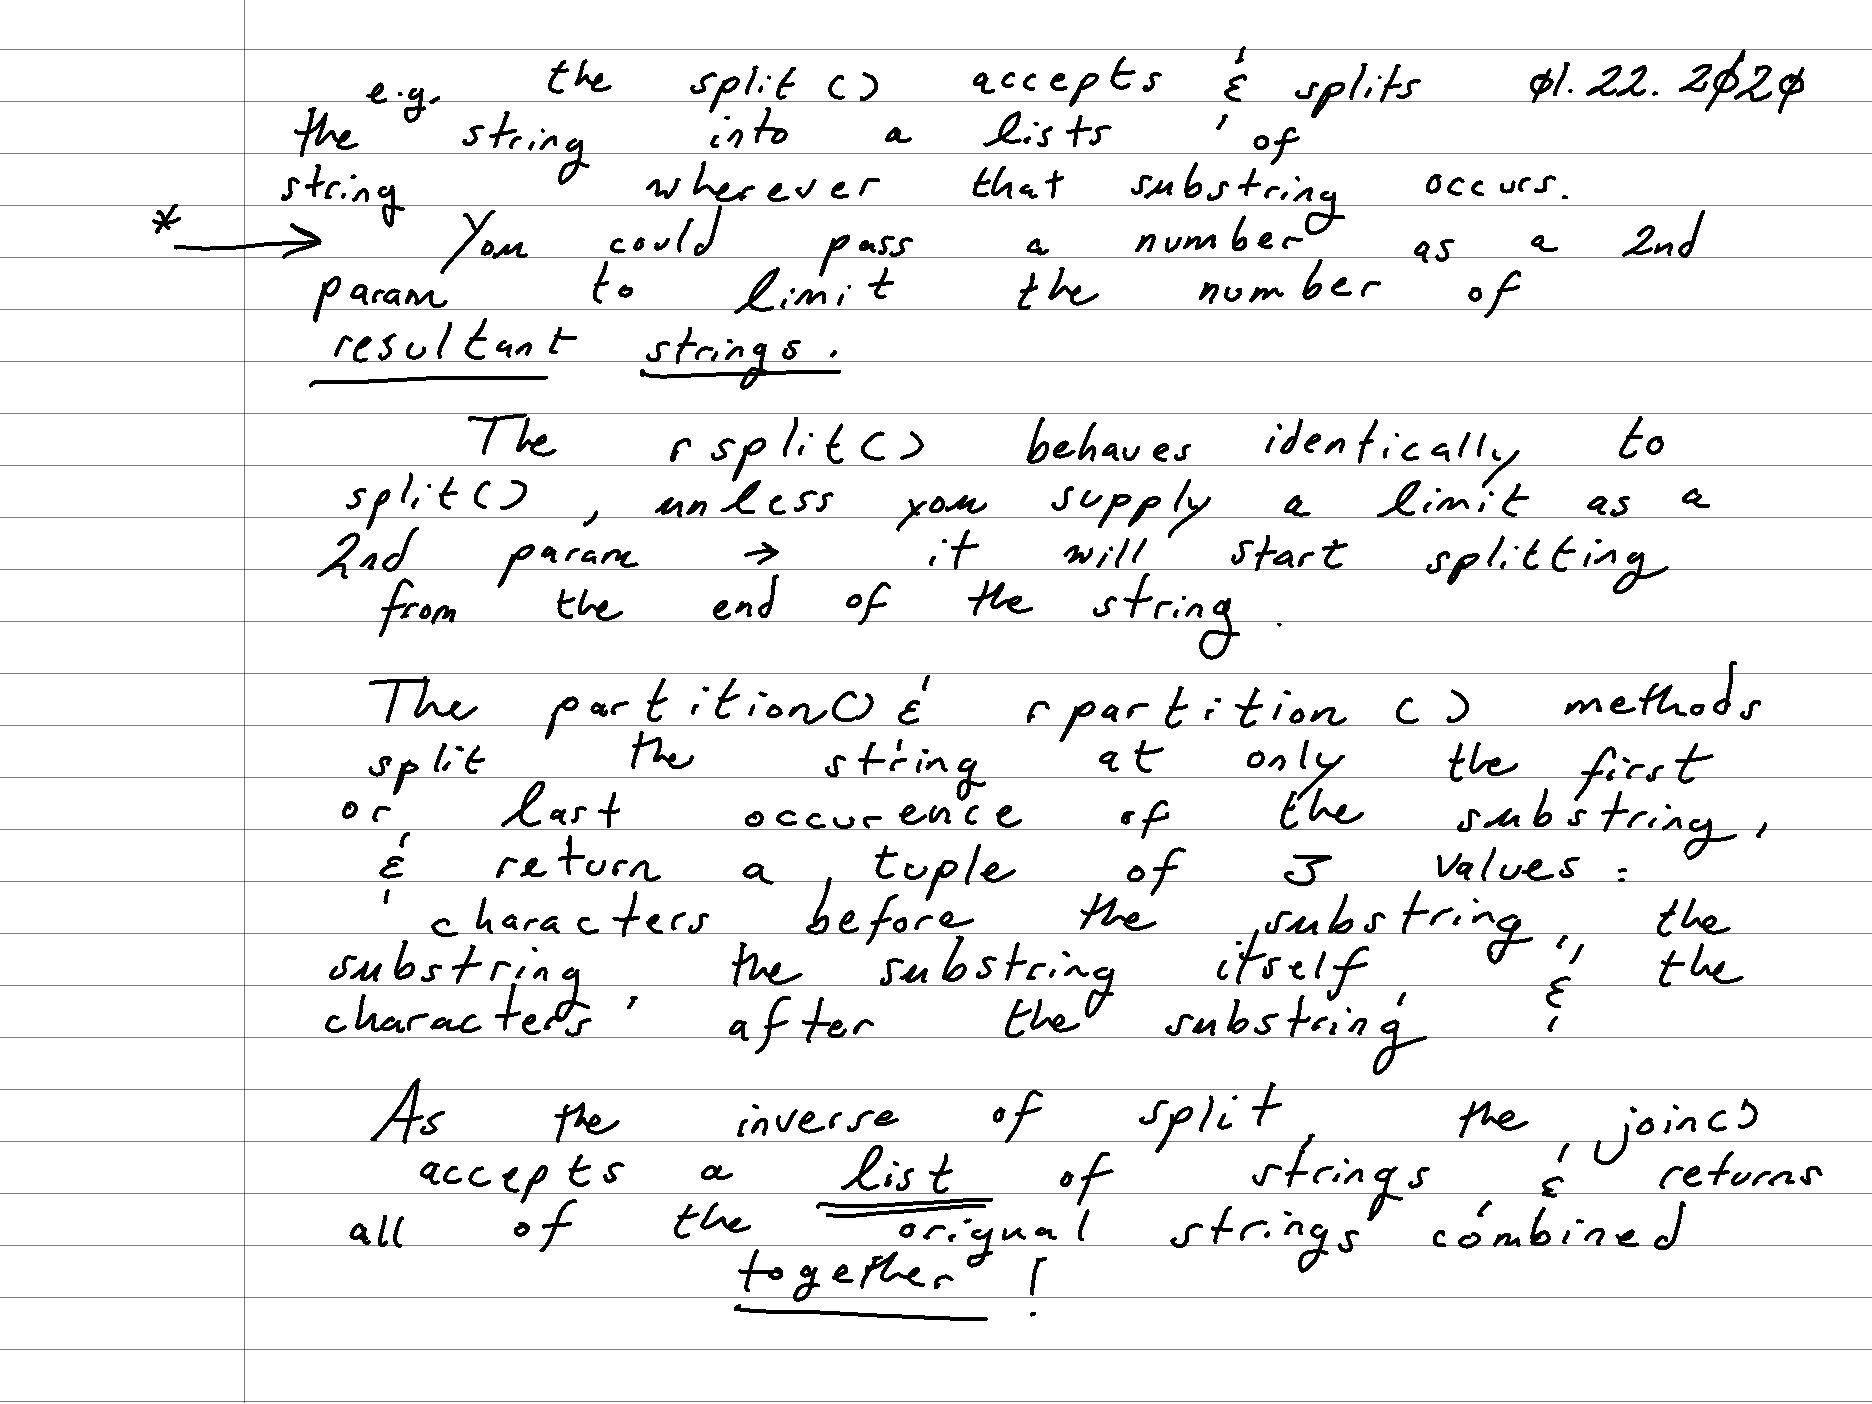 e.g. the split() accepts & splits 01.22.2020
the string into a lists of
string wherever that substring occurs.
* → You could pass a number as a 2nd
param to limit the number of
resultant strings.
The rsplit() behaves identically to
split(), unless you supply a limit as a
2nd param → it will start splitting
from the end of the string.
The partition() & rpartition() methods
split the string at only the first
or last occurence of the substring,
& return a tuple of 3 values:
characters before the substring, the
substring, the substring itself, & the
characters after the substring
As the inverse of split, the join()
accepts a list of strings & returns
all of the orignal strings combined
together!